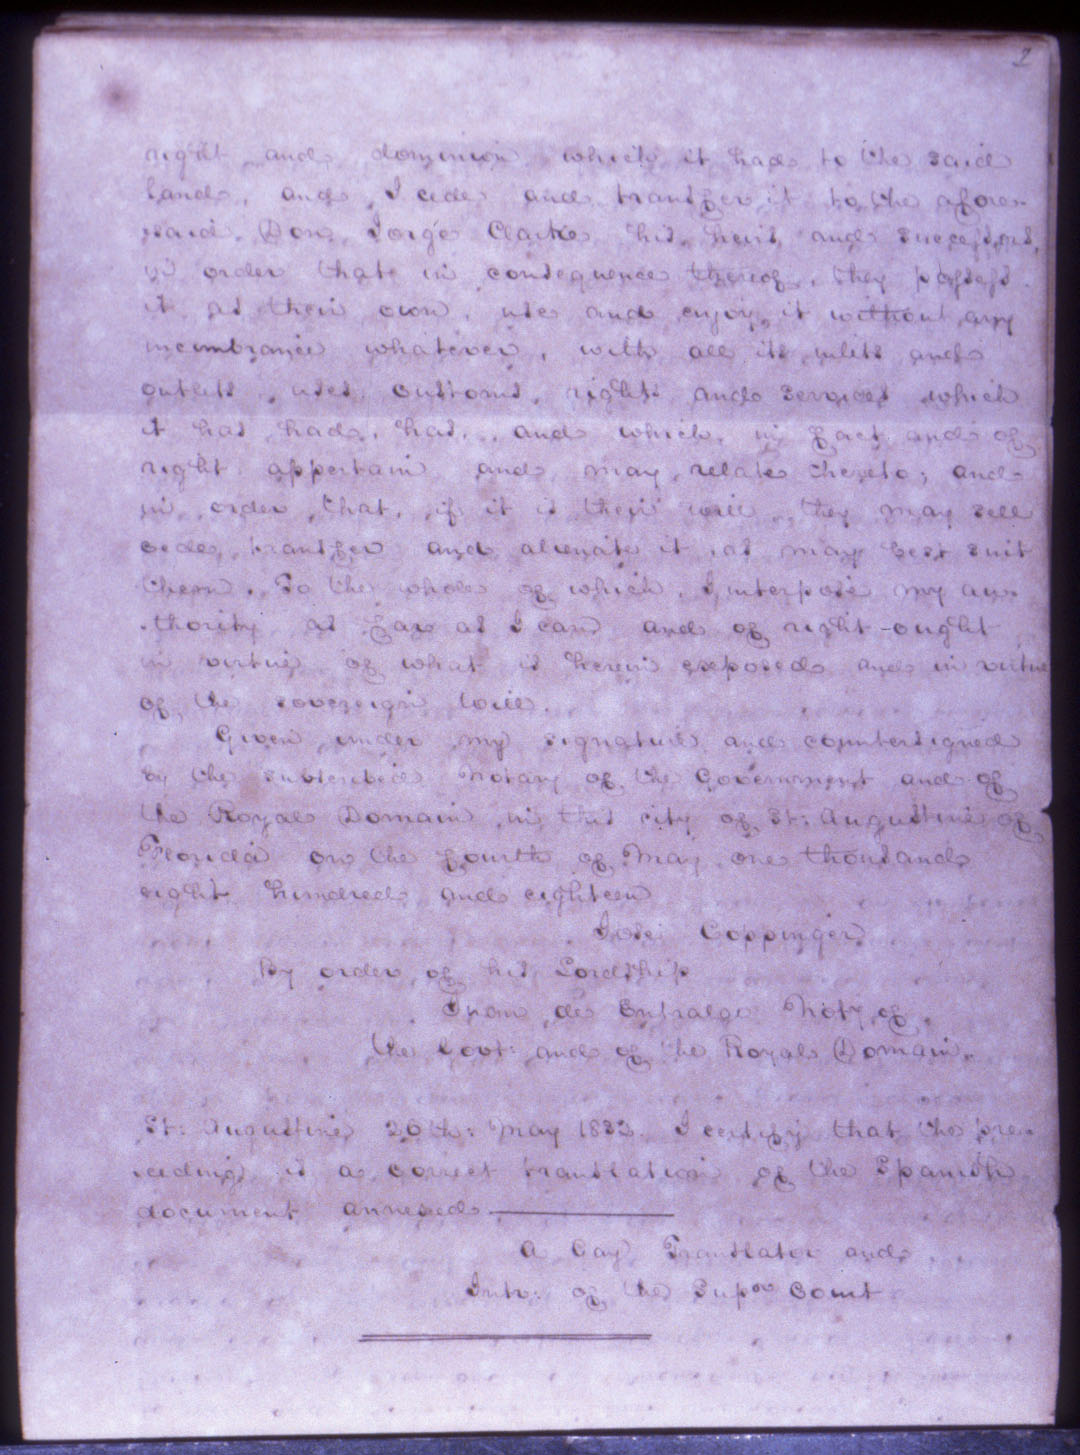 2
right and dominion which it had to the said
land, and I cede and transfer it to the afore-
said Don Jorge Clarke his heirs and successors,
in order that in consequence thereof, they possess
it as their own, use and enjoy it without any
incumbrance whatever, with all its inlets and
outlets, uses, customs, rights and services which
it has had, has, and which in fact and of
right appertain and may relate thereto; and
in order that, if it is their will, they may sell
cede, transfer and alienate it as may best suit
them. To the whole of which I interpose my au-
thority as far as I can and of right ought
in virtue of what is herein exposed and in virtue
of the sovereign will.
Given under my signature and countersigned
by the subscribed Notary of the Government and of
the Royal Domain in this city of St: Augustine of
Florida on the fourth of May one thousand
eight hundred and eighteen
José Coppinger
By order of his Lordship
Juan de Entralgo Noty of
the Govt: and of the Royal Domain.
St: Augustine 20th: May 1833. I certify that the pre-
ceding is a correct translation of the Spanish
document annexed
A Gay Translator and
Intr: of the Supor Court